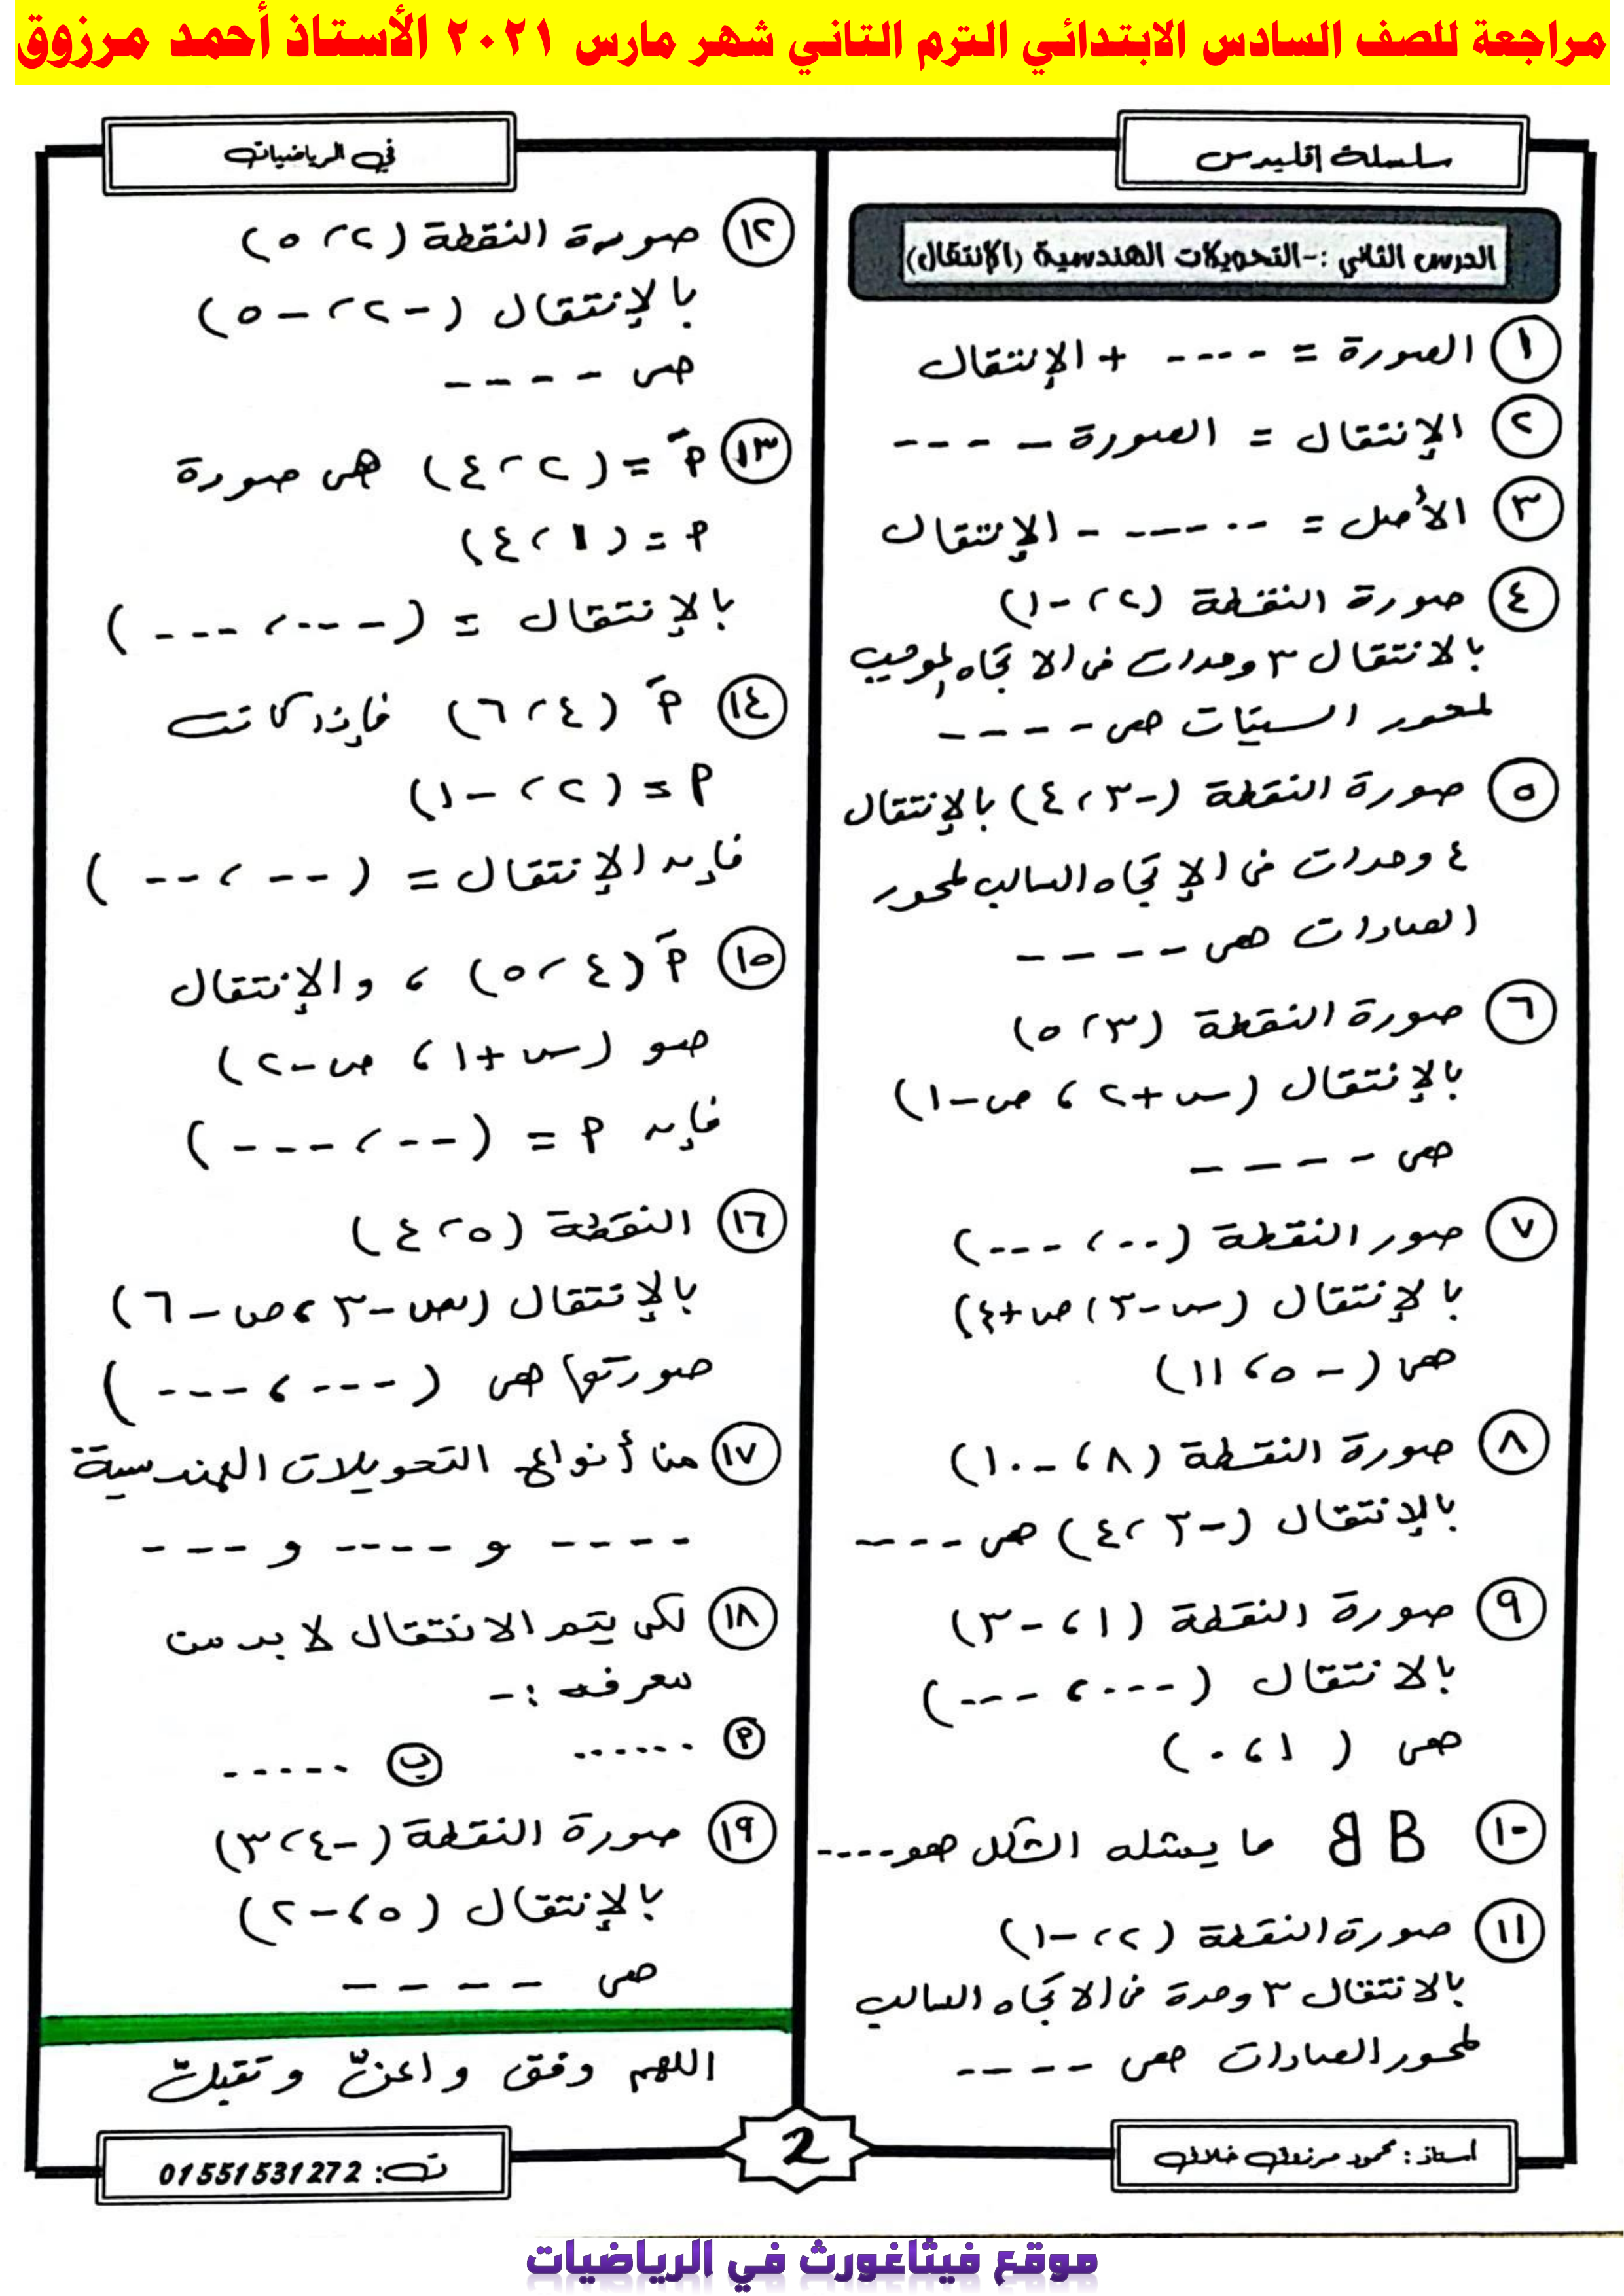 مراجعة للصف السادس الابتدائي الترم الثاني شهر مارس ٢٠٢١ الأستاذ أحمد مرزوق
سلسلة إقليدس
في الرياضيات
الدرس الثاني :- التحويلات الهندسية (الانتقال)
١ الصورة = ---- + الإنتقال
٢ الإنتقال = الصورة - ----
٣ الأصل = ------ - الإنتقال
٤ صورة النقطة (٢، -١)
بالانتقال ٣ وحدات فى الاتجاه الموجب
لمحور السينات هى ----
٥ صورة النقطة (-٣، ٤) بالإنتقال
٤ وحدات فى الإتجاه السالب لمحور
الصادات هى ----
٦ صورة النقطة (٣، ٥)
بالإنتقال (س+٢، ص-١)
هى ----
٧ صور النقطة (---، ---)
بالإنتقال (س-٣، ص+٤)
هى (-٥، ١١)
٨ صورة النقطة (٨، -١٠)
بالإنتقال (-٣، ٤) هى ----
٩ صورة النقطة (١، -٣)
بالانتقال (---، ---)
هى (١، ٠)
١٠ B B ما يمثله الشكل هو ----
١١ صورة النقطة (٢، -١)
بالانتقال ٣ وحدة فى الاتجاه السالب
لمحور الصادات هى ----
١٢ صورة النقطة (٢، ٥)
بالإنتقال (-٢، -٥)
هى ----
١٣ أَ = (٢، ٤) هى صورة
أ = (١، ٤)
بالإنتقال = (---، ---)
١٤ أَ (٤، ٦) فإذا كانت
أ = (٢، -١)
فإن الإنتقال = (--، --)
١٥ أَ (٤، ٥)، والإنتقال
هو (س+١، ص-٢)
فإن أ = (--، ---)
١٦ النقطة (٥، ٤)
بالإنتقال (س-٣، ص-٦)
صورتها هى (---، ---)
١٧ من أنواع التحويلات الهندسية
---- و ---- و ---
١٨ لكى يتم الانتقال لا بد من
معرفة :-
أ ...... ب ......
١٩ صورة النقطة (-٤، ٣)
بالإنتقال (٥، -٢)
هى ----
اللهم وفق وأعن وتقبل
أستاذ : محمود مرزوق خلاف
2
ت: 01551531272
موقع فيثاغورث في الرياضيات